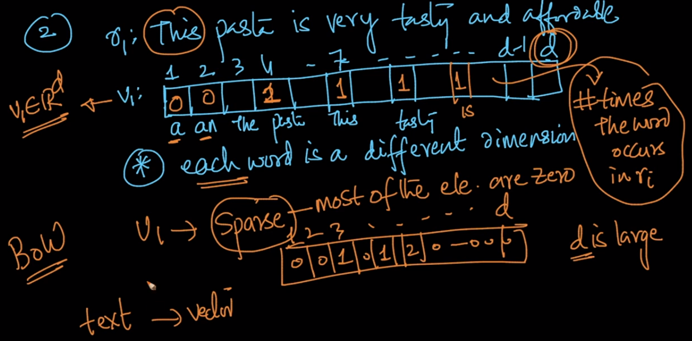 ② r₁: This pasta is very tasty and affordable
1 2 3 4 - 7 - - - - - d-1 d
v₁∈ℝᵈ ← v₁: 0 0 1 1 1 1
a an the pasta This tasty is
#times the word occurs in rᵢ
* each word is a different dimension
v₁ → Sparse – most of the ele. are zero
BoW
1 2 3 . - - - - . d
0 0 1 0 1 2 0 – 0 0 0
d is large
text → vector